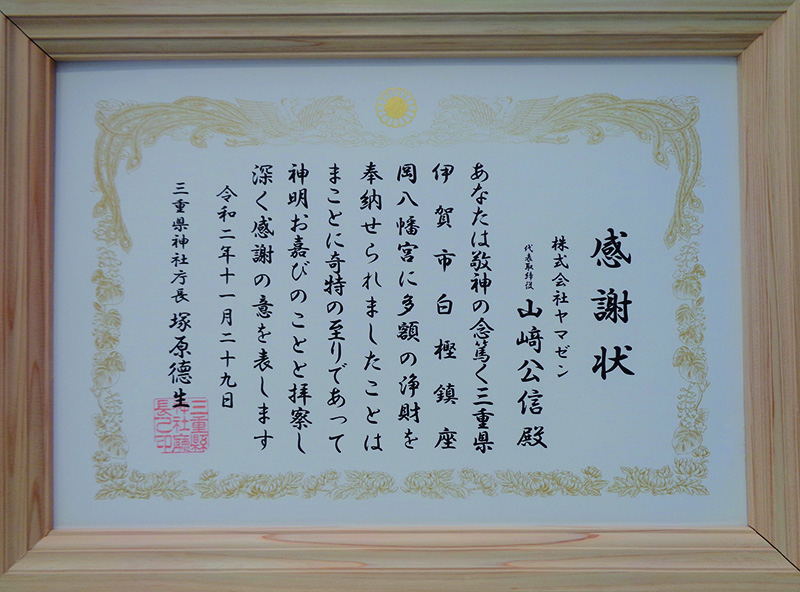 感謝状
株式会社ヤマゼン
代表取締役 山﨑公信 殿
あなたは敬神の念篤く三重県
伊賀市白樫鎮座
岡八幡宮に多額の浄財を
奉納せられましたことは
まことに奇特の至りであって
神明お嘉びのことと拝察し
深く感謝の意を表します
令和二年十一月二十九日
三重県神社庁長 塚原徳生
三重縣
神社廳
長之印